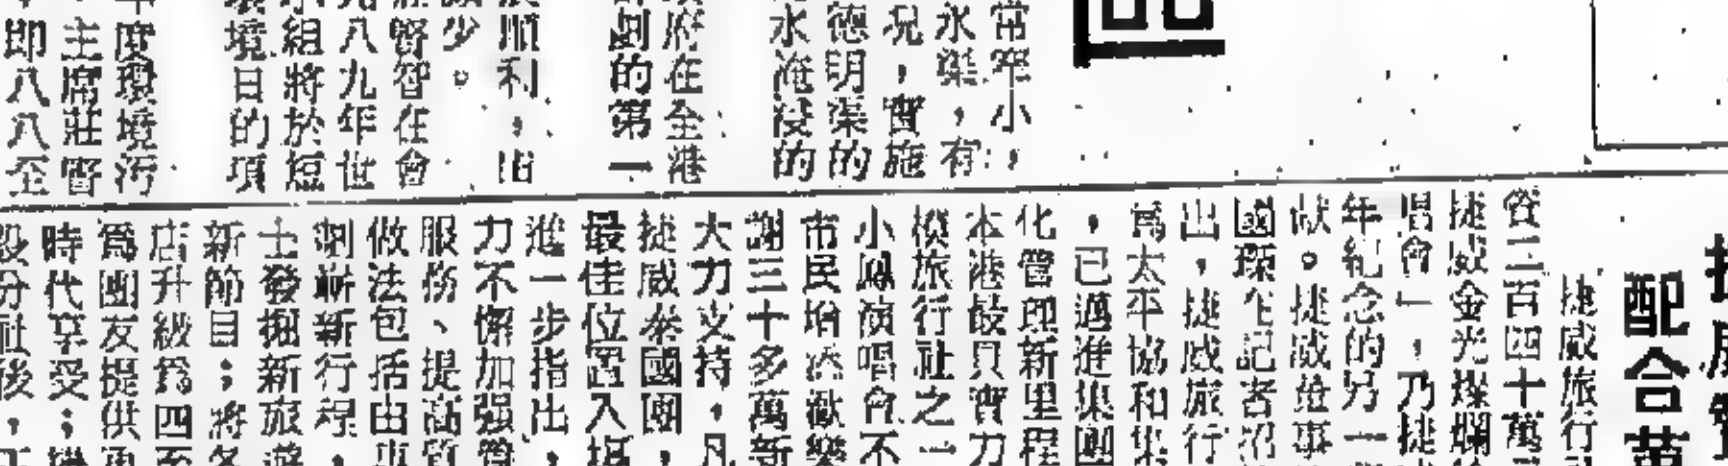 常窄小，
況，實施
永樂，有
德明渠的
水淹浸的
府在全港
劃的第一
順利，出
少。
賢智在會
八九年世
組將於短
境目的項
度環境污
主席莊賢
即八八至
配合
捷威旅行
資二百四十萬
捷威金光燦爛
唱會」，乃捷
年紀念的另一
獻。捷威董事
國琛在記者招
出，捷威旅行
爲太平協和集
，已邁進集團
化管理新里程
本港最具實力
模旅行社之一
小鳳演唱會不
市民增添歡樂
謝三十多萬新
大力支持，凡
捷威泰國團，
最佳位置入場
進一步指出，
力不懈加强管
服務、提高質
做法包括由專
劃嶄新行程，
士發掘新旅遊
新節目；將各
店升級爲四至
爲團友提供更
時代享受；
設分社後，